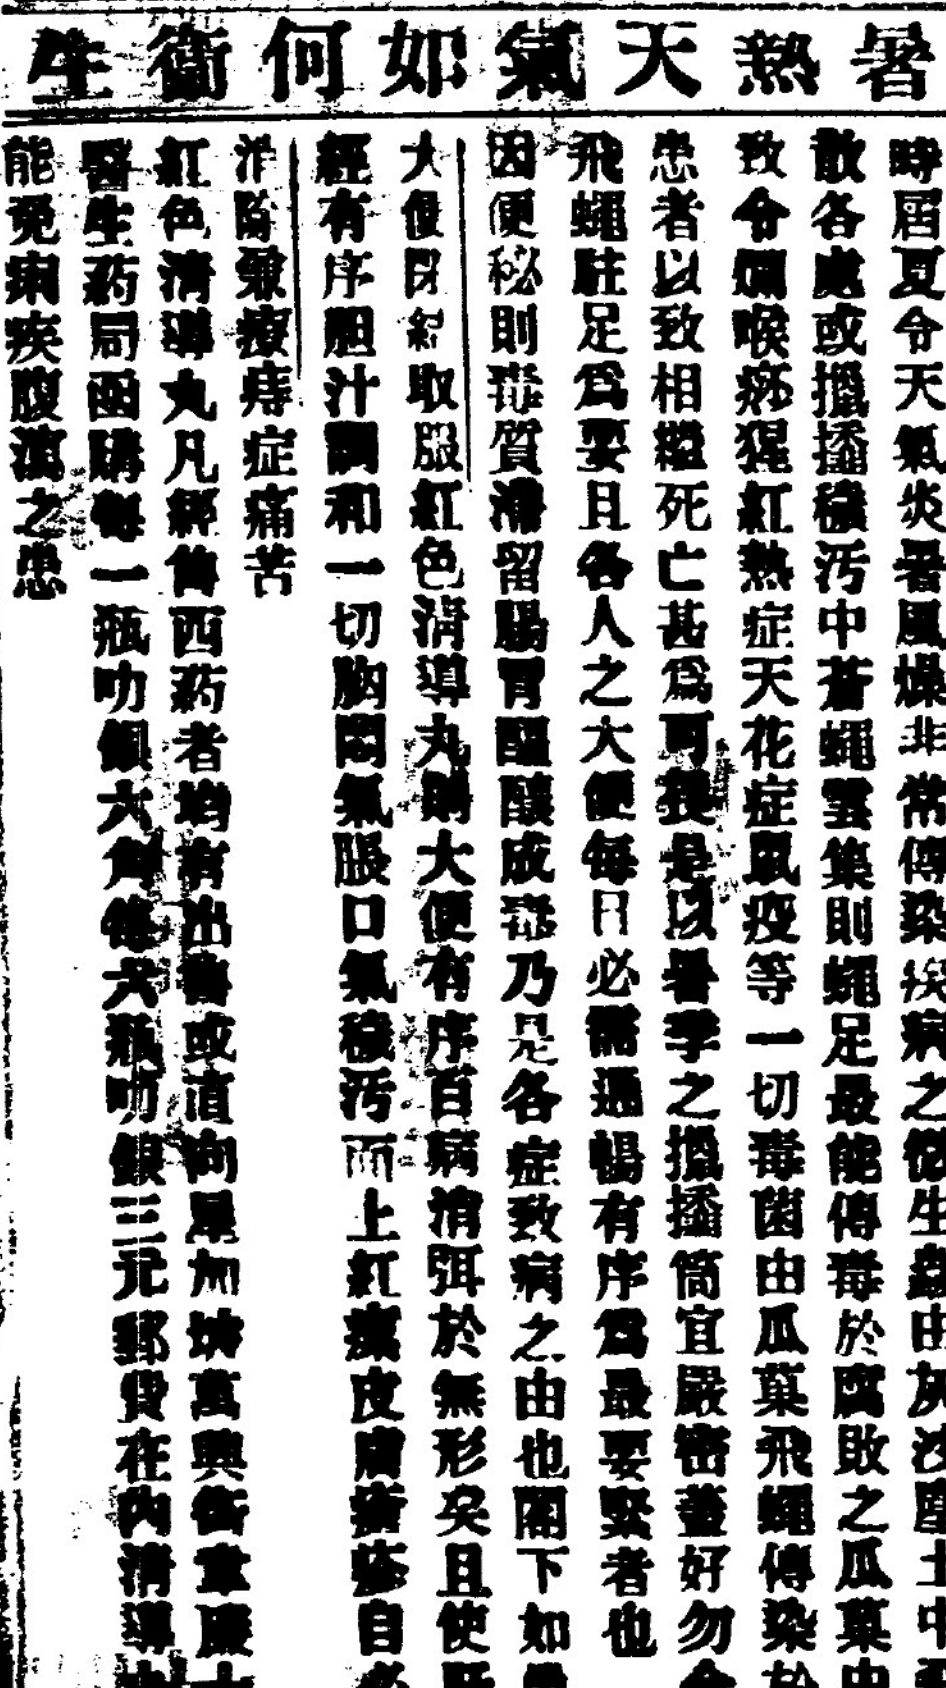 暑熱天氣如何衛生
時屆夏令天氣炎暑風燥非常傳染疾病之微生蟲由灰沙塵土中飛
散各處或攤播穢污中蒼蠅雲集則蠅足最能傳毒於腐敗之瓜菓中
致令爛喉痧猩紅熱症天花症鼠疫等一切毒菌由瓜菓飛蠅傳染於
患者以致相繼死亡甚為可挽是以暑季之攤播筒宜嚴密蓋好勿令
飛蠅駐足為要且各人之大便每日必需通暢有序為最要緊者也
因便秘則毒質滯留腸胃醞釀成毒乃是各症致病之由也閣下如
大便閉結取服紅色清導丸則大便有序百病消弭於無形矣且使肝
經有序胆汁調和一切胸悶氣脹口氣穢污而上紅瘰皮膚瘡疹自必
消除兼療痔症痛苦
紅色清導丸凡經售西药者均有出售或直向星加坡萬興街韋廉士
醫生药局函購每一瓶叻銀六角每六瓶叻銀三元郵費在內清導丸
能免痢疾腹瀉之患